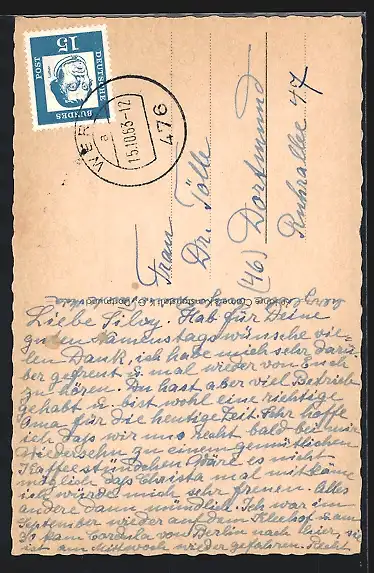 15
DEUTSCHE
BUNDES
POST
WERL
a
15.10.63-12
476
Frau
Dr. Tölle
(46) Dortmund
Ruhrallee 47
Liebe Silvy. Hab für Deine
guten Namenstagswünsche vie-
len Dank, ich habe mich sehr darü-
ber gefreut u. mal wieder von Euch
zu hören. Du hast aber viel Betrieb
gehabt u. bist wohl eine richtige
Oma für die heutige Zeit. Ihr hoffe
ich daß wir uns recht bald bei mir
wiedersehn zu einem gemütlichen
Kaffeestündchen. Wäre es nicht
möglich daß Christa mal mitkäme
ich würde mich sehr freuen. Alles
andere dann mündlich. Ich war im
September wieder auf dem u. am
kam Cordula von Berlin nach hier, sie
ist am Mittwoch wieder gefahren. Recht